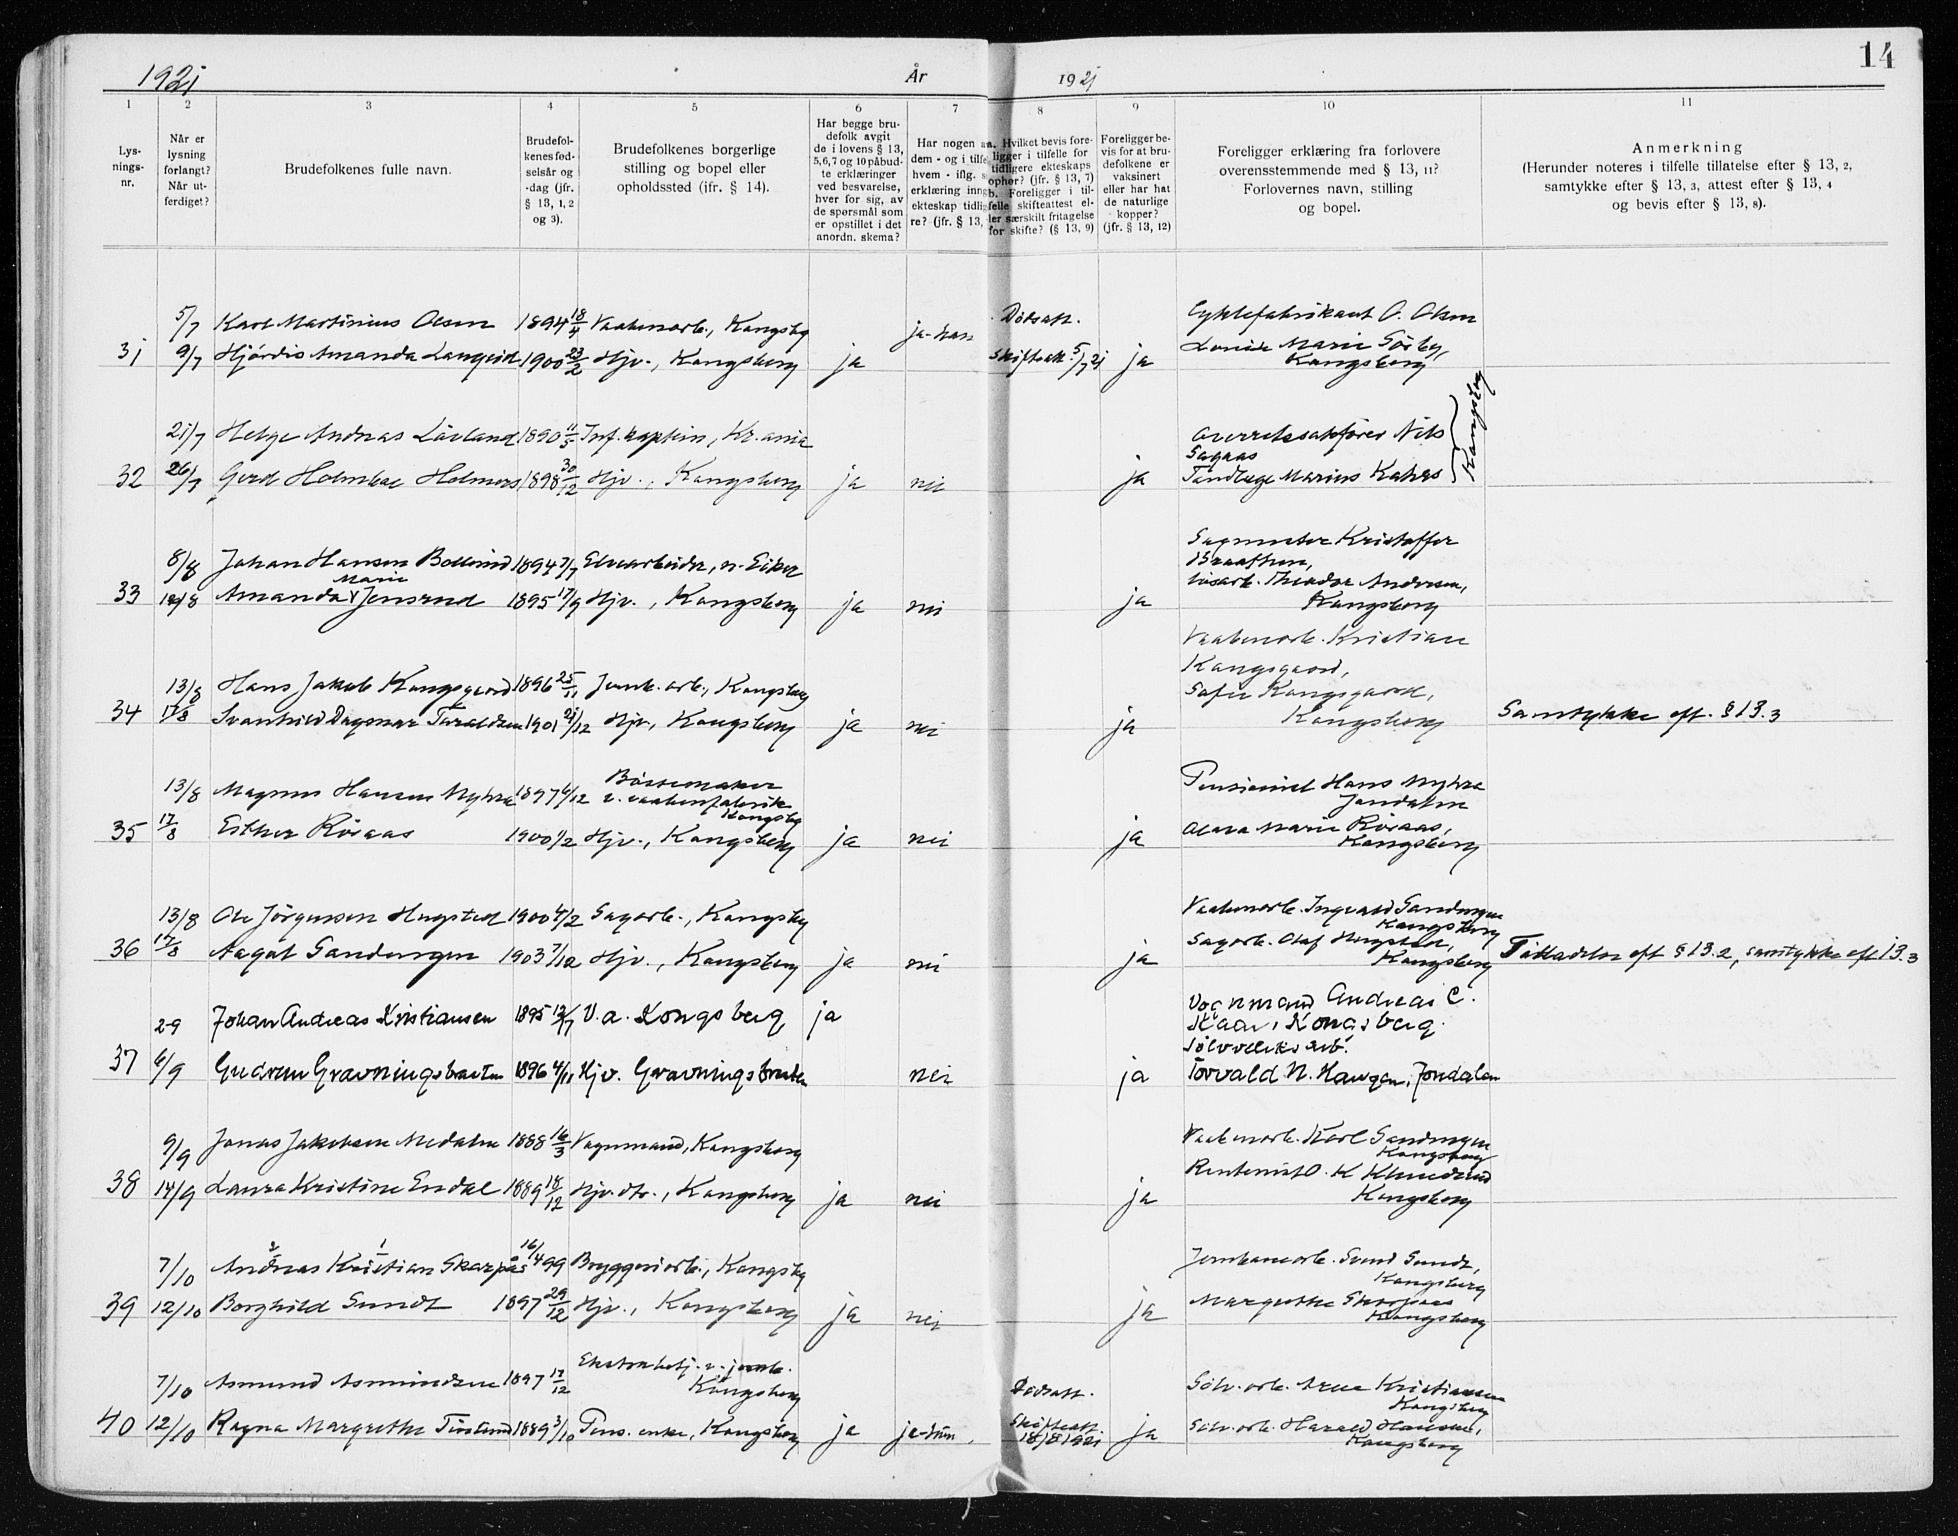 14
1921 År 1921
1 2 3 4 5 6 7 8 9 10 11
Lysnings-nr.
Når er lysning forlangt? Når utferdiget?
Brudefolkenes fulle navn.
Brudefolkenes fødselsår og -dag (jfr. § 13, 1, 2 og 3).
Brudefolkenes borgerlige stilling og bopel eller opholdssted (ifr. § 14).
Har begge brudefolk avgit de i lovens § 13, 5,6,7 og 10 påbudte erklæringer ved besvarelse, hver for sig, av de spørsmål som er opstillet i det anordn. skema?
Har nogen a dem - og i tilfe hvem - iflg. s erklæring inng ekteskap tidli re? (jfr. § 13,
a. Hvilket bevis foreligger i tilfelle for tidligere ekteskaps ophør? (jfr. § 13, 7) b. Foreligger i tilfelle skifteattest eller særskilt fritagelse for skifte? (§ 13, 9)
Foreligger bevis for at brudefolkene er vaksinert eller har hat de naturlige kopper? (jfr. § 13, 12)
Foreligger erklæring fra forlovere overensstemmende med § 13, 11? Forlovernes navn, stilling og bopel.
Anmerkning
(Herunder noteres i tilfelle tillatelse efter § 13, 2, samtykke efter § 13, 3, attest efter § 13, 4 og bevis efter § 13, 8).
5/7 Karl Martinius Olsen 1894 18/4 Vaabenarb., Kongsbg ja-han Dødsatt. Cyklefabrikant O. Olsen
31 9/7 Hjördis Amanda Lanqvid 1900 23/2 Hjv., Kongsberg ja Skifteatt. 5/7 21 ja Louise Marie Sörby,
Kongsberg
21/7 Helge Andreas Lövland 1890 11/5 Inf. kaptein, Kr.ania Overretssakfører Nils
Sagaas
32 26/7 Gerd Holmboe Holmers 1898 30/12 Hjv., Kongsberg ja nei ja Tandlæge Marius Kahrs
Kongsberg
8/8 Johan Hansen Bollerud 1894 7/7 Elvearbeider, n. Eiker Sagmester Kristoffer
Braathen,
Marie
33 12/8 Amanda Jensrud 1895 17/9 Hjv., Kongsberg ja nei ja løsarb. Theodor Andersen,
Kongsberg
Vaabenarb. Kristian
Kongsgaard,
13/8 Hans Jakob Kongsgaard 1896 25/11 Jernb. arb., Kongsberg Sofie Kongsgaard,
34 17/8 Svanhild Dagmar Taraldsen 1901 21/12 Hjv., Kongsberg ja nei ja Kongsberg Samtykke eft. § 13.3
13/8 Magnus Hansen Myhra 1897 6/12 Bössemaker
v. vaabenfabrik
Kongsbg
Pensionist Hans Myhra
Jondalen
35 17/8 Esther Röraas 1900 1/2 Hjv., Kongsberg ja nei ja Olava Marie Röraas,
Kongsberg
13/8 Ole Jörgensen Hugsted 1900 4/2 Sagarb., Kongsbg Vaabenarb. Ingvald Sandengen
Kongsberg
36 17/8 Aagot Sandengen 1903 7/12 Hjv., Kongsberg ja nei ja Sagarb. Olaf Hugsted,
Kongsberg Tilladelse eft § 13.2, samtykke eft 13.3
2-9 Johan Andreas Kristiansen 1895 12/7 V.a. Kongsberg ja Vognmand Andreas C.
Skaar, Kongsberg.
Sölvverks arb.
37 6/9 Gudrun Gravningsbraaten 1896 4/11 Hjv. Gravningsbraaten nei ja Torvald N. Haugen, Jondalen
9/9 Jonas Jakobsen Medalen 1888 16/3 Vognmand, Kongsberg Vaabenarb. Karl Sandengen
Kongsberg
38 14/9 Laura Kristine Endal 1889 18/12 Hjv. dtr., Kongsberg ja nei ja Rentenist O. K
Kongsberg
2 1
7/10 Andreas Kristian Skarpaas 16/4 99 Bryggeriarb., Kongsbg Jernbanearb. Svend Sundt,
Kongsberg
39 12/10 Borghild Sundt 1897 29/12 Hjv., Kongsberg ja nei ja Margrethe Skarpaas
Kongsberg
7/10 Asmund Asmundsen 1897 17/12 Ekstrabetj. v. jernb.
Kongsberg Dødsatt. Sölv. arb. Arne Kristiansen
Kongsberg
40 12/10 Ragna Margrethe 1889 3/10 Pens. enke, Kongsberg ja ja-hun. Skifteatt.
18/8 1921 ja Sölv. arb. Harald Hansen,
Kongsberg